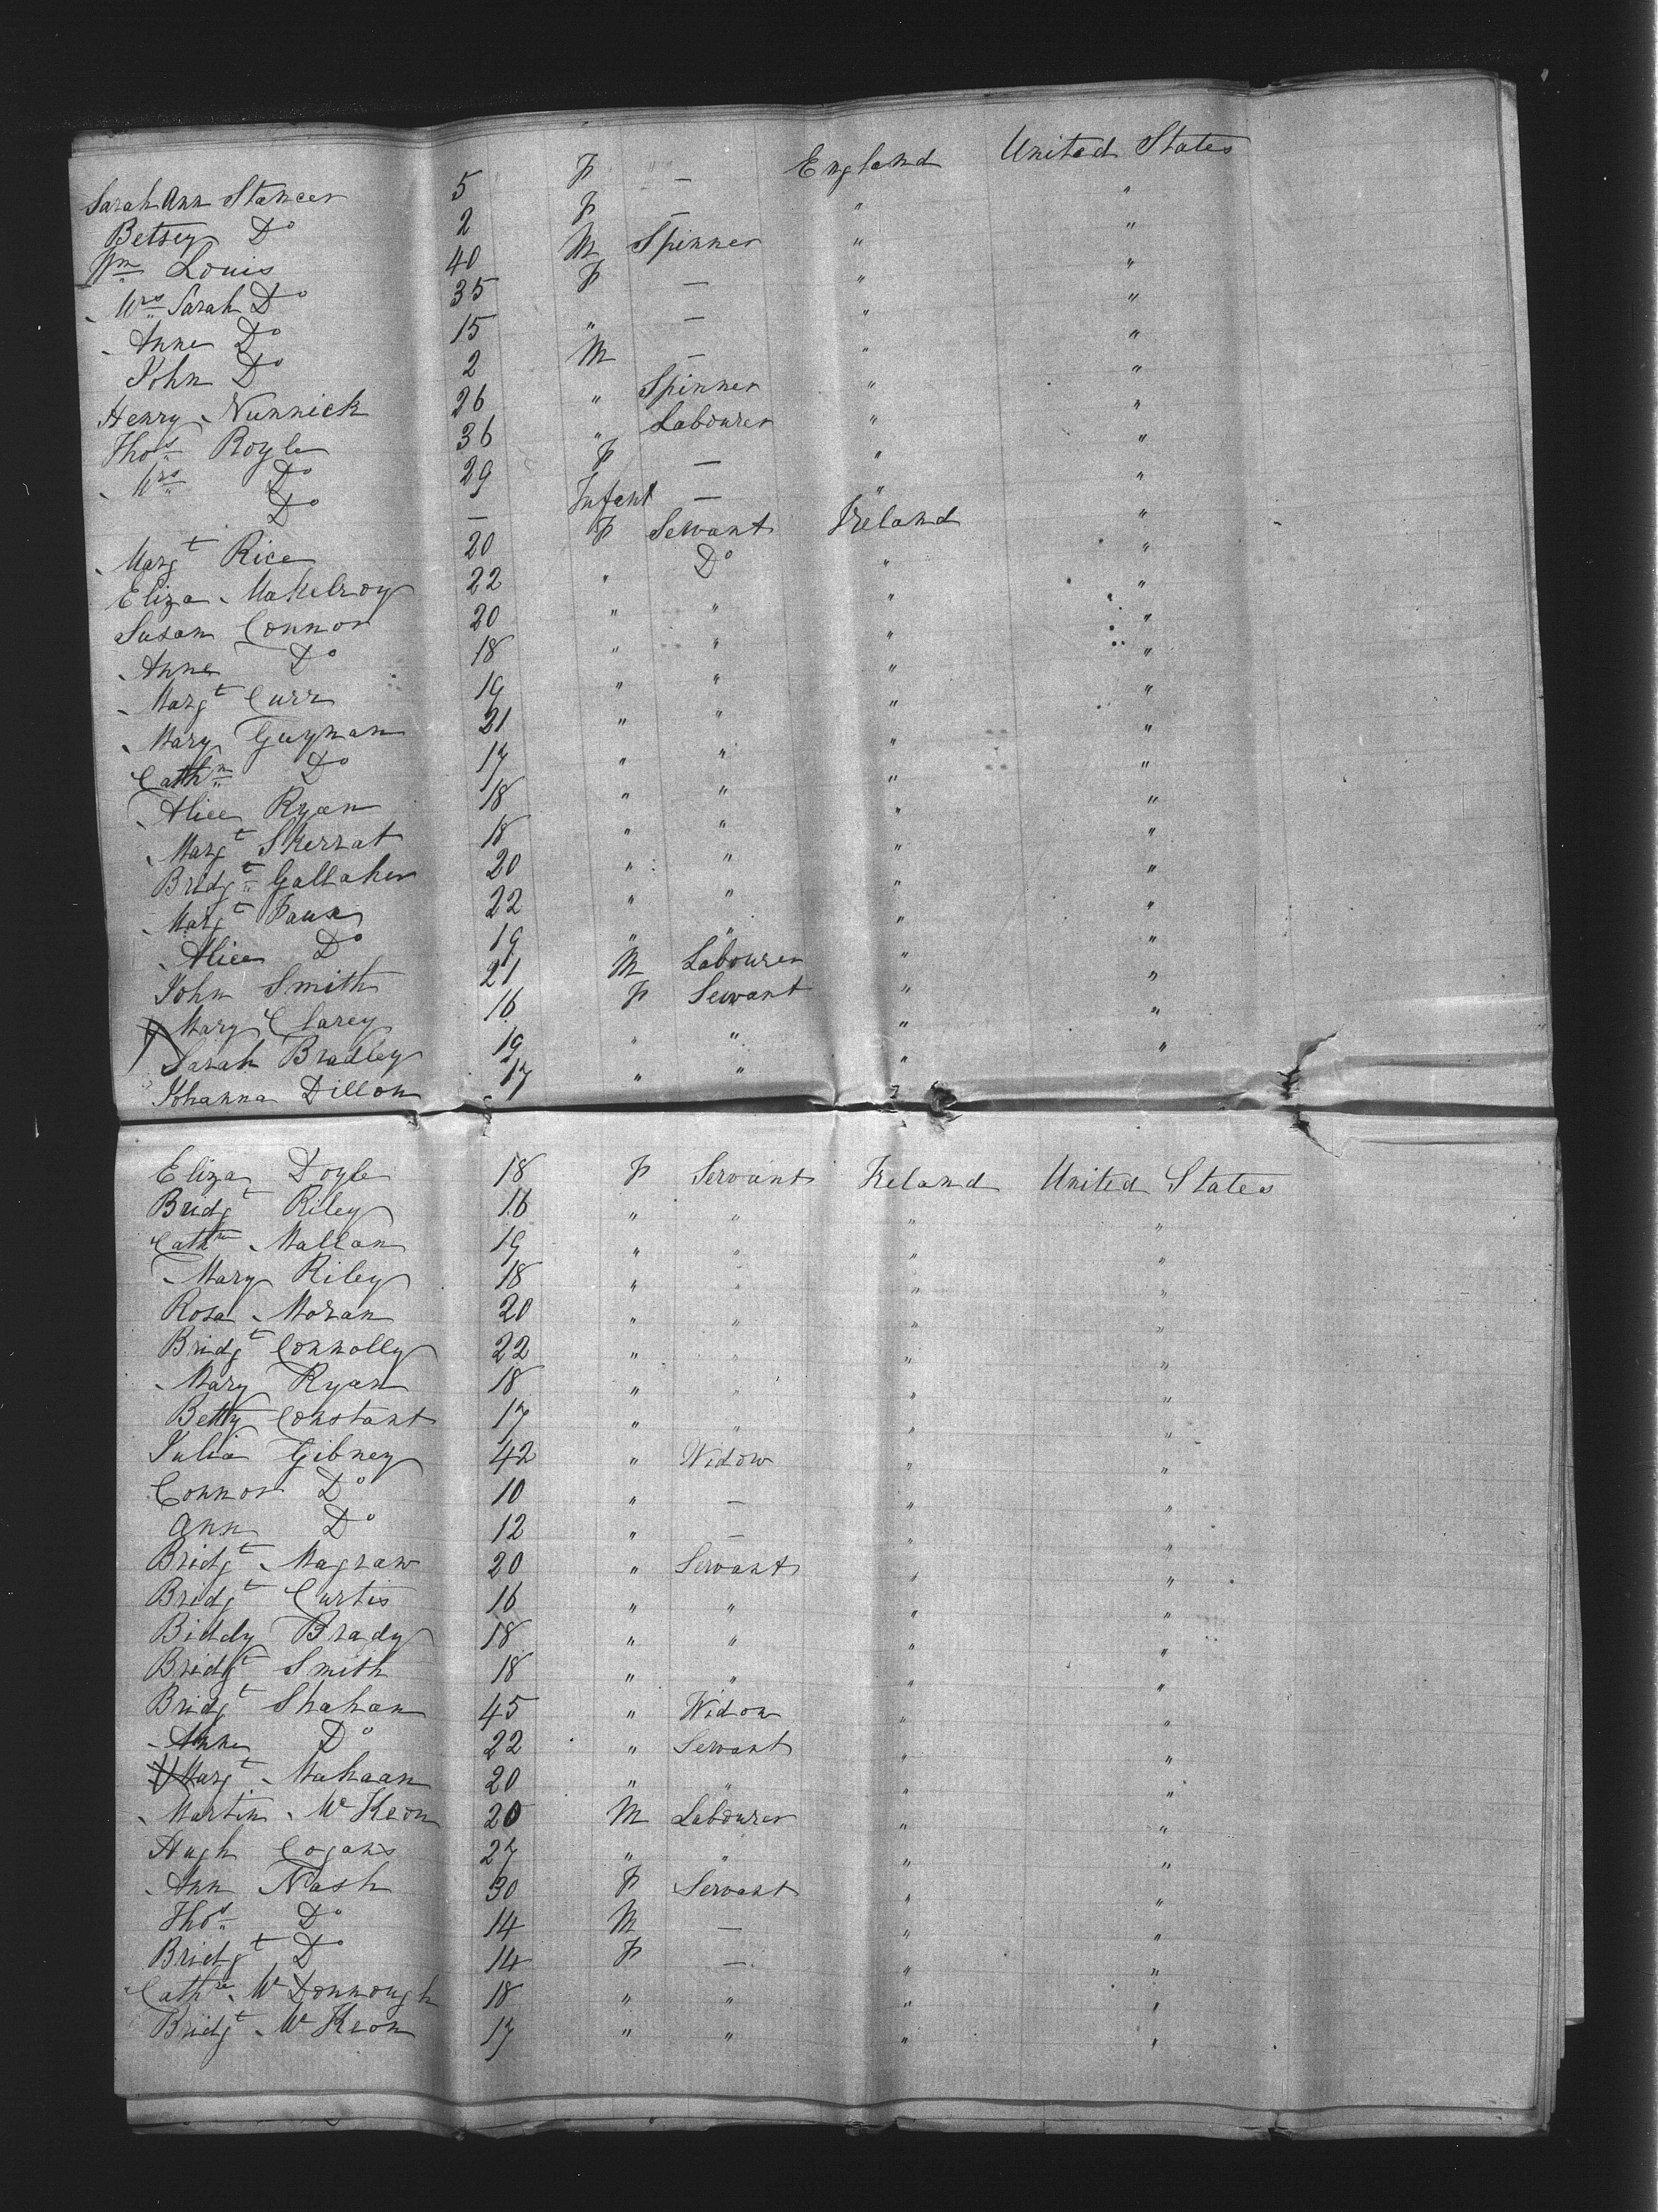 Sarah Ann Stancer 5 F — England United States
Betsey Do 2 F — " "
Wm Louis 40 M Spinner " "
Mrs Sarah Do 35 F — " "
Anne Do 15 " — " "
John Do 2 M — " "
Henry Nunnick 26 " Spinner " "
Thos Royle 36 " Labourer " "
Mrs Do 29 F — " "
Do — Infant — " "
Margt Rice 20 F Servant Ireland "
Eliza Makelroy 22 " Do " "
Susan Connor 20 " " " "
Anne Do 18 " " " "
Margt Curr 19 " " " "
Mary Guynan 21 " " " "
Cathn Do 17 " " " "
Alice Ryan 18 " " " "
Margt Skerrat 18 " " " "
Bridgt Gallaher 20 " " " "
Margt 22 " " " "
Alice Do 19 " " " "
John Smith 21 M Labourer " "
Mary Clarey 16 F Servant " "
Sarah Bradley 19 " " " "
Johanna Dillon 17 " " "
Eliza Doyle 18 F Servant Ireland United States
Bridgt Riley 16 " " " "
Cathn Mallan 19 " " " "
Mary Riley 18 " " " "
Rosa Moran 20 " " " "
Bridgt Connolly 22 " " " "
Mary Ryan 18 " " " "
Betty Constant 17 " " " "
Julia Gibney 42 " Widow " "
Connor Do 10 " — " "
Ann Do 12 " — " "
Bridgt Magraw 20 " Servant " "
Bridgt Curtis 16 " " " "
Biddy Brady 18 " " " "
Bridgt Smith 18 " " " "
Bridgt Shahan 45 " Widow " "
Anne Do 22 " Servant " "
Margt Mahaan 20 " " " "
Martin McKeon 20 M Labourer " "
Hugh Cogans 27 " " " "
Ann Nash 30 F Servant " "
Thos Do 14 M — " "
Bridgt Do 14 F — " "
Cathne McDonnough 18 " " " "
Bridgt McKeon 17 " " " "